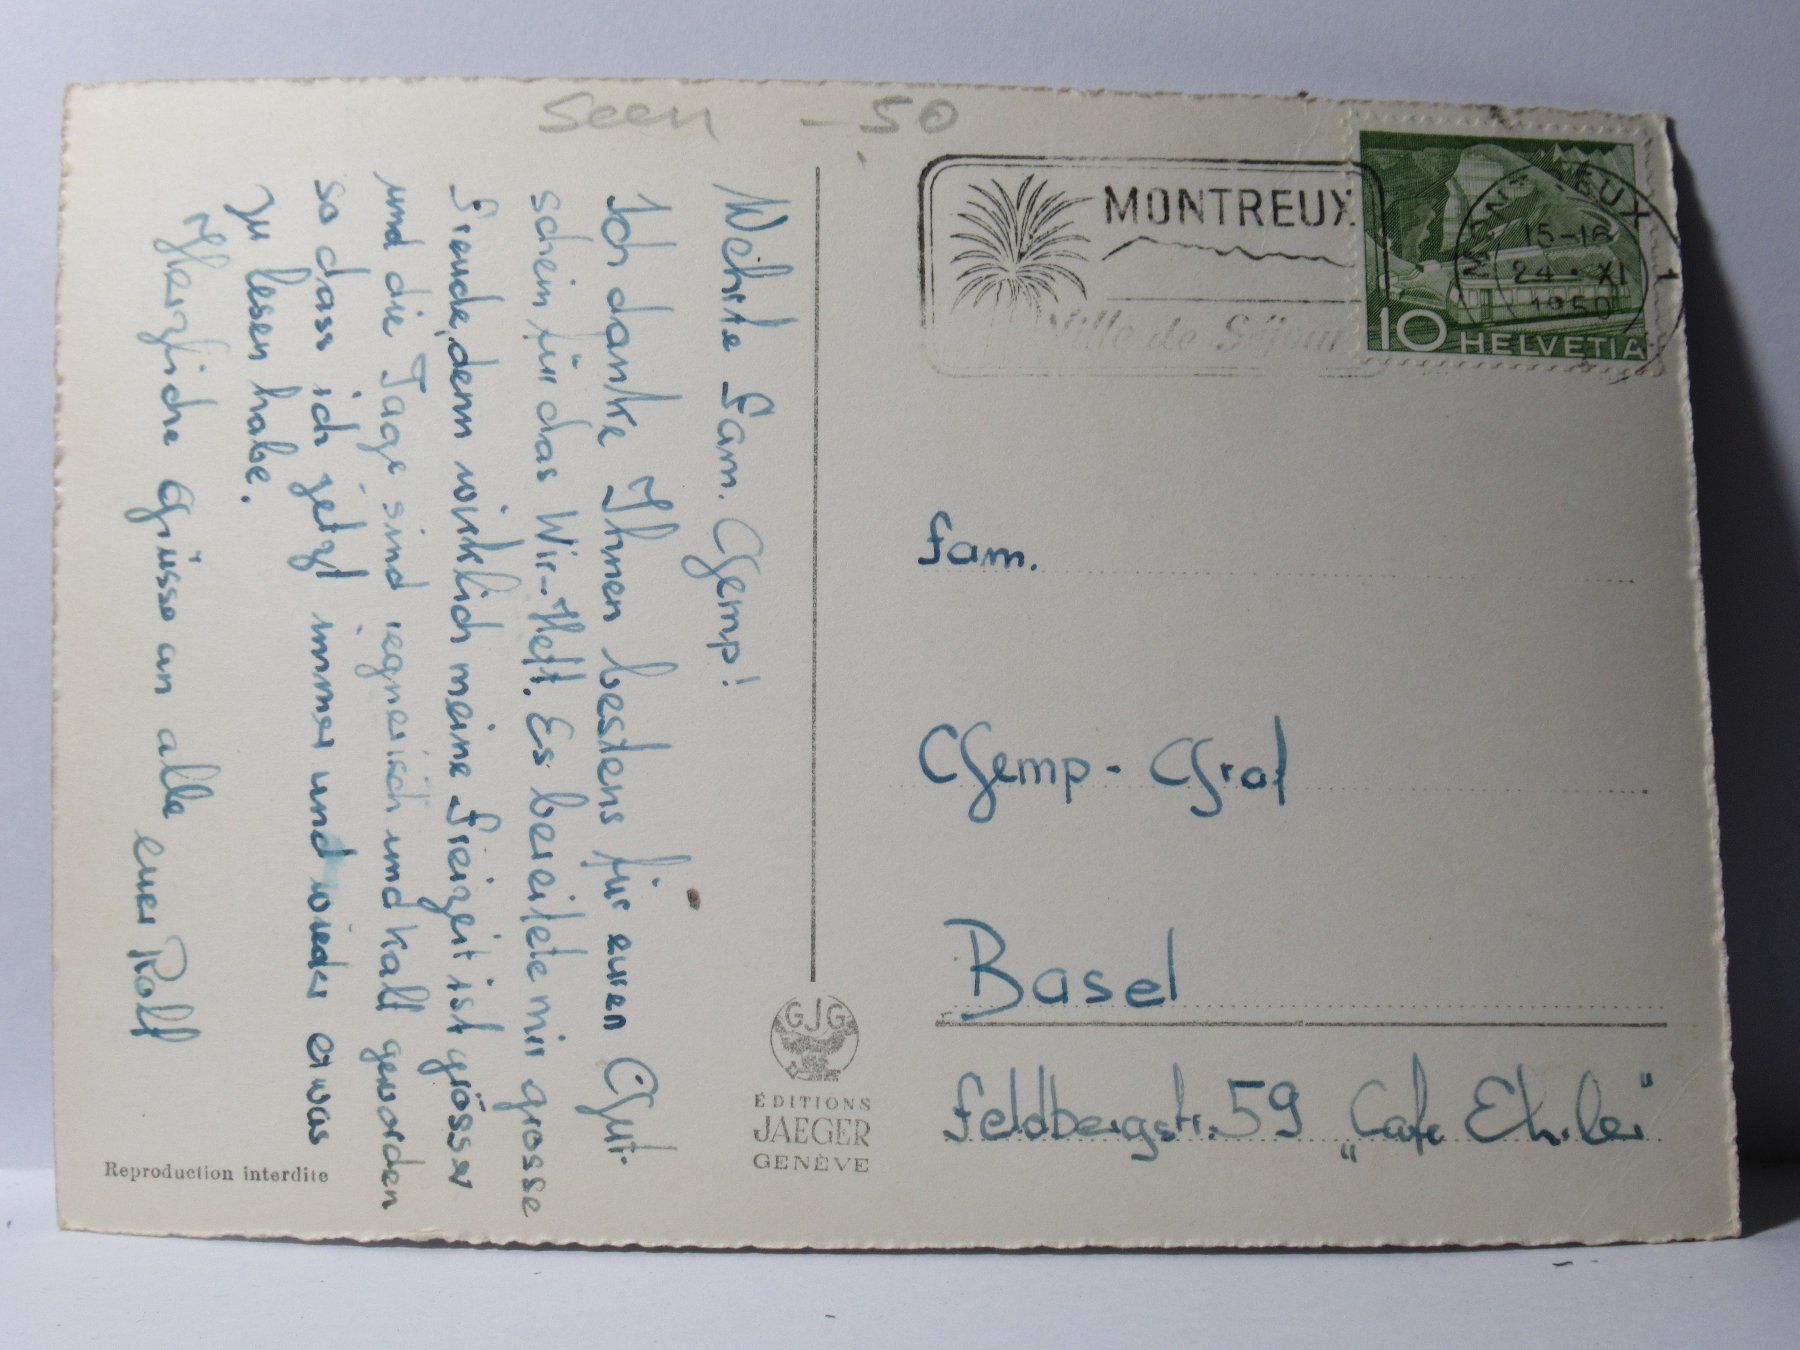 Seen -.50
Wehrte Fam. Gemp!
Ich danke Ihnen bestens für euren Gut-
schein für das Wir-Heft. Es bereitete mir grosse
Freude, denn wirklich meine Freizeit ist grösser
und die Tage sind regnerisch und kalt geworden
so dass ich jetzt immer und wieder etwas
zu lesen habe.
Herzliche Grüsse an alle
euer Rolf
Reproduction interdite
GJG
ÉDITIONS
JAEGER
GENÈVE
MONTREUX
Ville de Séjour
MONTREUX
15-16
24·XI
1950
1
10 HELVETIA
Fam.
Gemp-Graf
Basel
Feldbergstr. 59 „Cafe Ehrler"